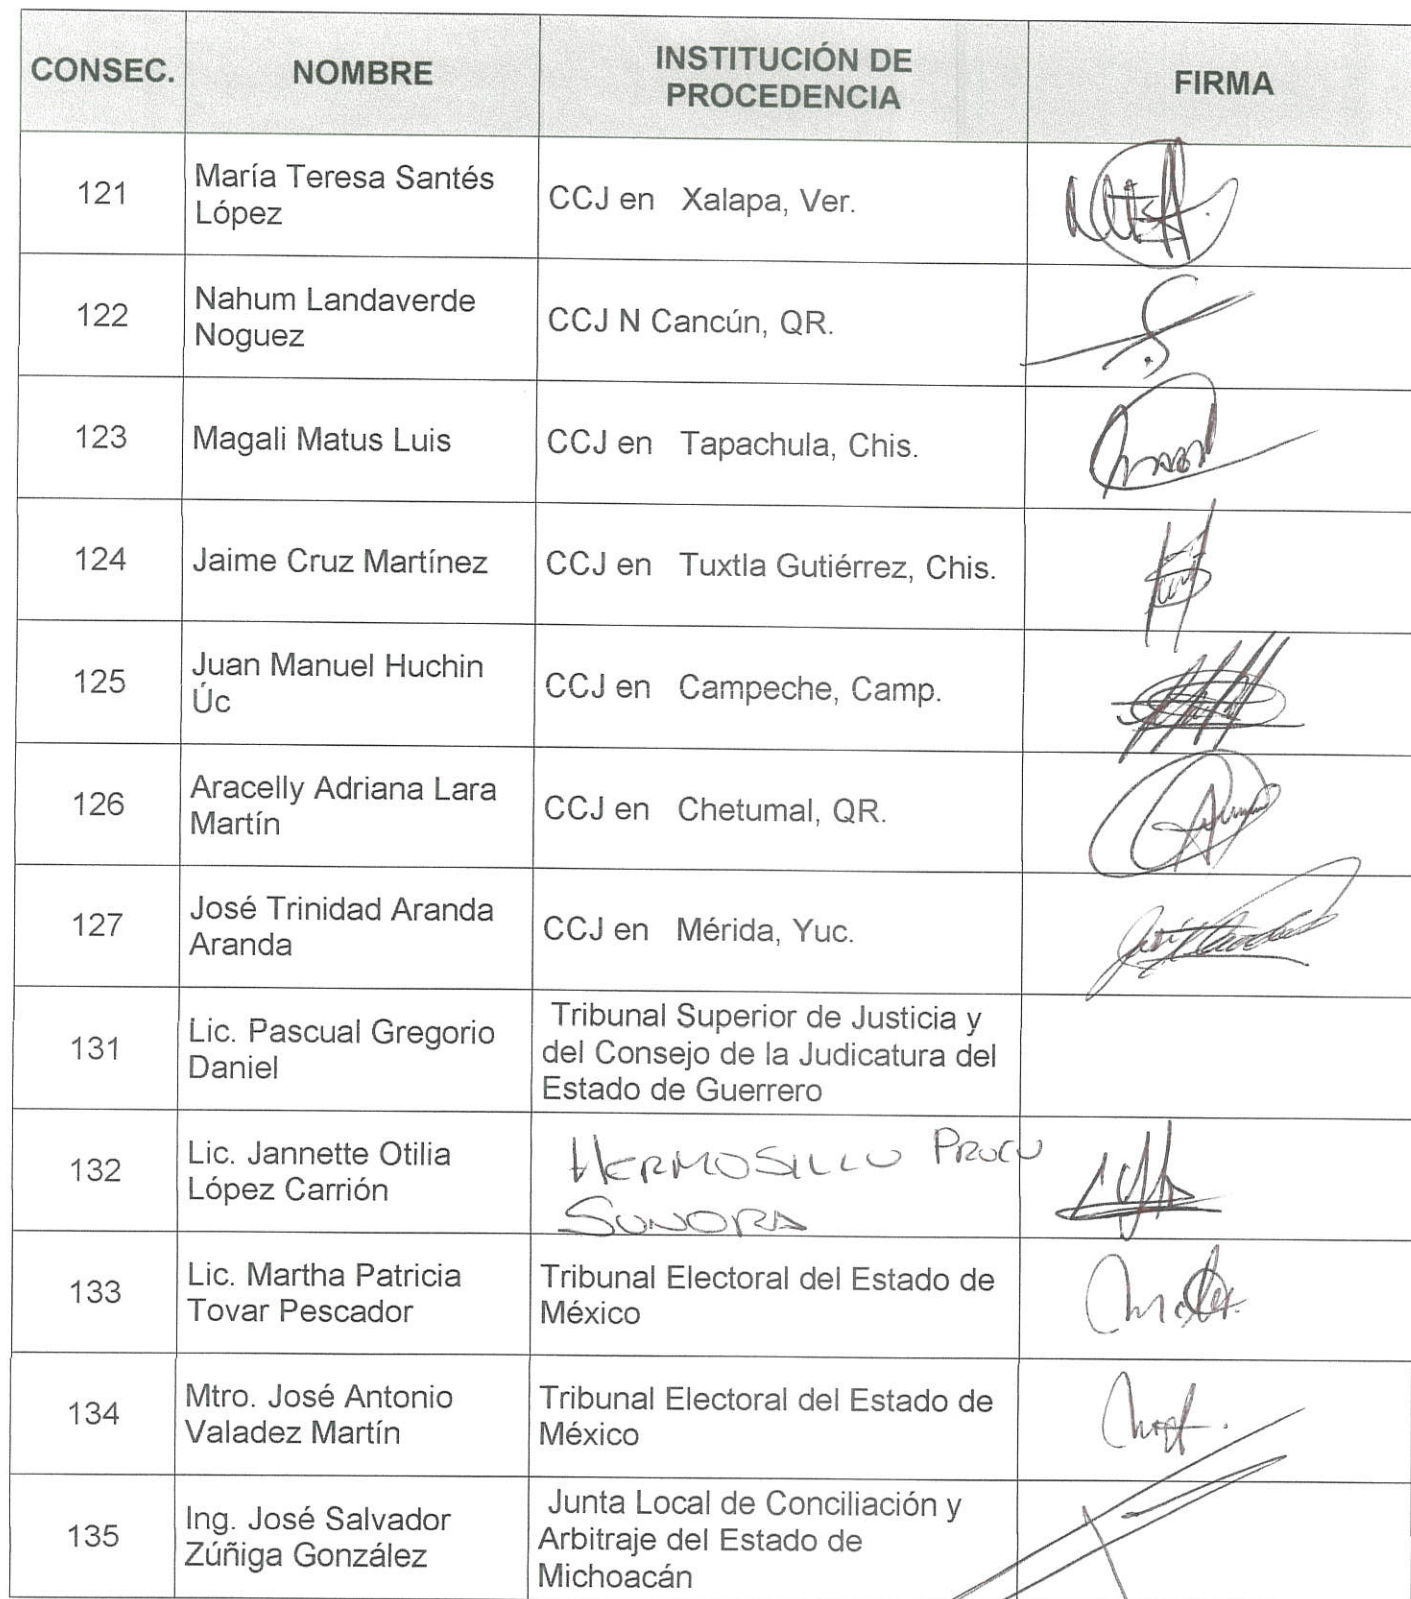 CONSEC.
NOMBRE
INSTITUCIÓN DE
PROCEDENCIA
FIRMA
121
María Teresa Santés
López
CCJ en Xalapa, Ver.
122
Nahum Landaverde
Noguez
CCJ N Cancún, QR.
123
Magali Matus Luis
CCJ en Tapachula, Chis.
124
Jaime Cruz Martínez
CCJ en Tuxtla Gutiérrez, Chis.
125
Juan Manuel Huchin
Úc
CCJ en Campeche, Camp.
126
Aracelly Adriana Lara
Martín
CCJ en Chetumal, QR.
127
José Trinidad Aranda
Aranda
CCJ en Mérida, Yuc.
131
Lic. Pascual Gregorio
Daniel
Tribunal Superior de Justicia y
del Consejo de la Judicatura del
Estado de Guerrero
132
Lic. Jannette Otilia
López Carrión
HERMOSILLO
SONORA
133
Lic. Martha Patricia
Tovar Pescador
Tribunal Electoral del Estado de
México
134
Mtro. José Antonio
Valadez Martín
Tribunal Electoral del Estado de
México
135
Ing. José Salvador
Zúñiga González
Junta Local de Conciliación y
Arbitraje del Estado de
Michoacán